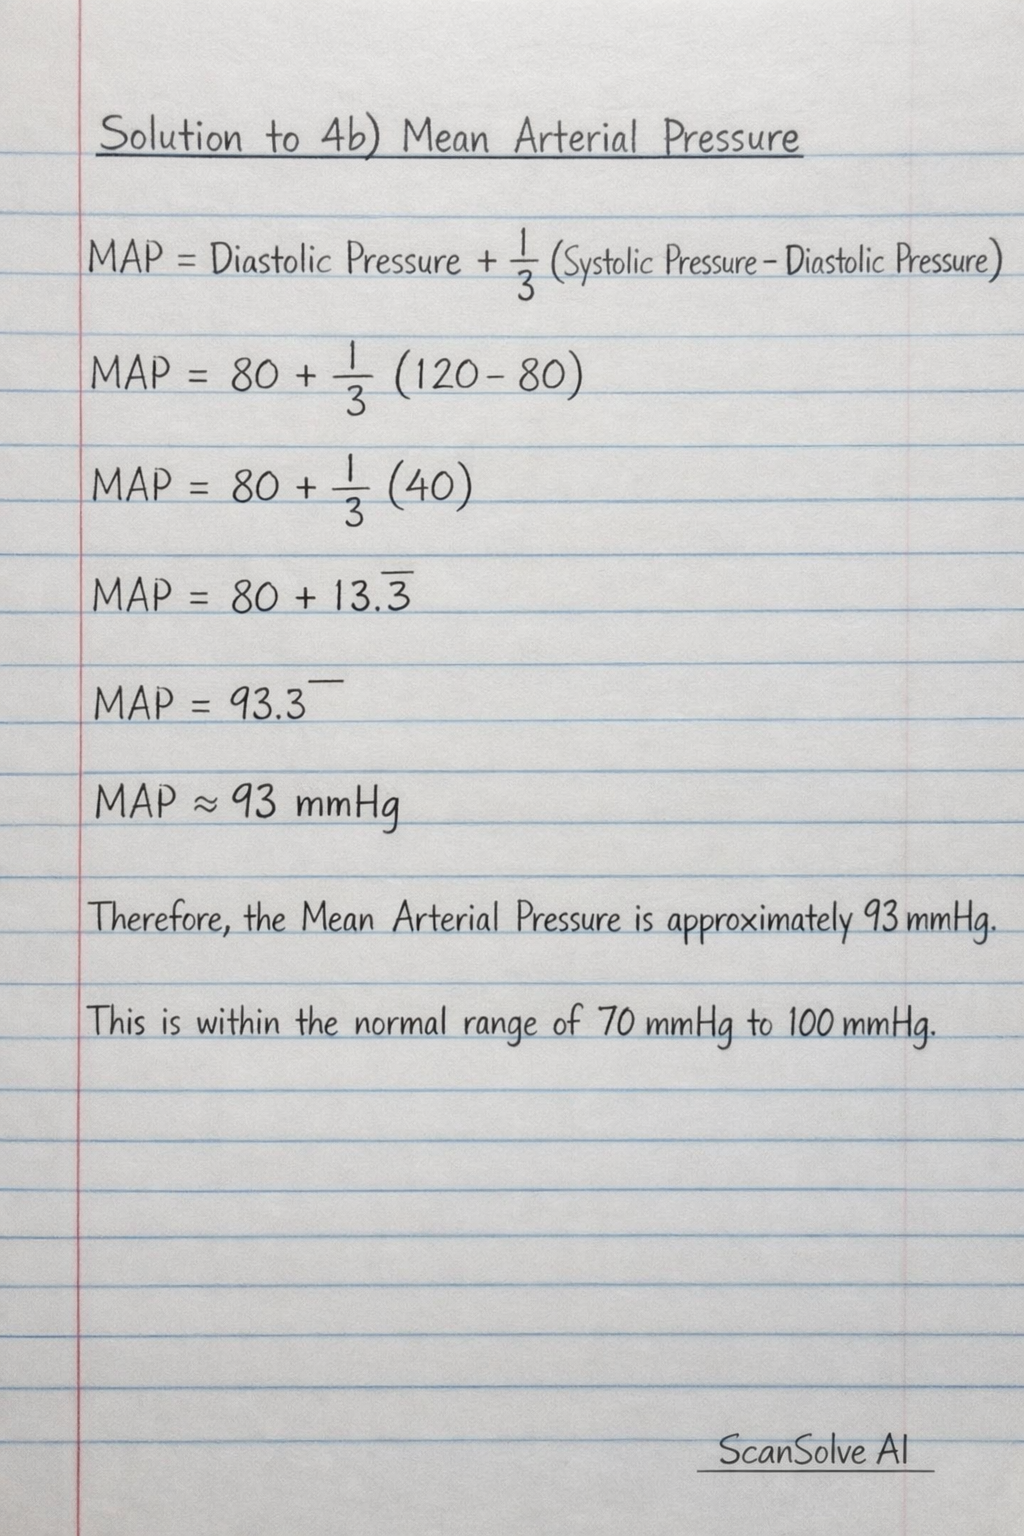 Solution to 4b) Mean Arterial Pressure
MAP = Diastolic Pressure + 1/3 (Systolic Pressure - Diastolic Pressure)
MAP = 80 + 1/3 (120 - 80)
MAP = 80 + 1/3 (40)
MAP = 80 + 13.3̅
MAP = 93.3 ‾
MAP ≈ 93 mmHg
Therefore, the Mean Arterial Pressure is approximately 93 mmHg.
This is within the normal range of 70 mmHg to 100 mmHg.
ScanSolve AI